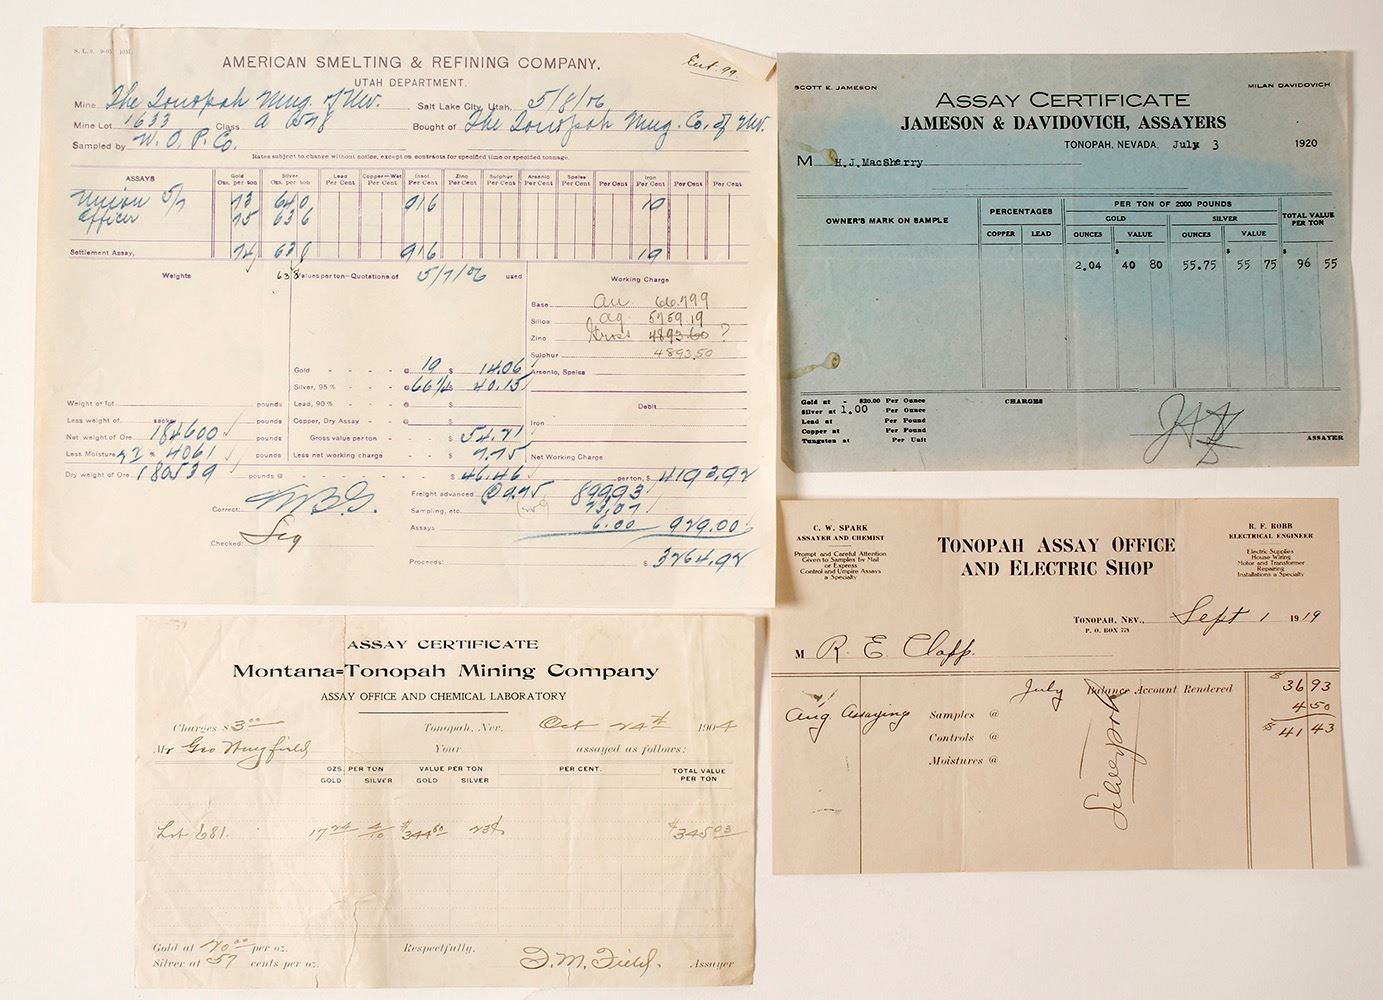 S. L. 9. 9-05 10M
AMERICAN SMELTING & REFINING COMPANY.
UTAH DEPARTMENT.
Ent. 99
Mine The Tonopah Mng. of Nev. Salt Lake City, Utah, 5/8/06
Mine Lot 1633 Class A 6578 Bought of The Tonopah Mng. Co. of Nev.
Sampled by W. O. P. Co.
Rates subject to change without notice, except on contracts for specified time or specified tonnage.
ASSAYS Gold Ozs. per ton Silver Ozs. per ton Lead Per Cent Copper-Wet Per Cent Insol. Per Cent Zinc Per Cent Sulphur Per Cent Arsenic Per Cent Speiss Per Cent Per Cent Iron Per Cent Per Cent Per Cent
Union 5/7 73 640 916 19
Officer 75 636
Settlement Assay, 74 638 916 19
Weights 638 Values per ton-Quotations of 5/7/06 used Working Charge
Base Au 66.799
Silica Ag 5759.19
Zinc Gross 4893.60 ?
Sulphur 4893.50
Gold @ 19 $ 14.06 Arsenic, Speiss
Silver, 95% @ 66 1/4 $ 40.15
Weight of lot pounds Lead, 90% @ $ Debit
Less weight of sacks Copper, Dry Assay $ Iron
Net weight of Ore 184600 pounds Gross value per ton $ 54.21
Less Moisture 2.2 % 4061 pounds Less net working charge $ 7.75 Net Working Charge
Dry weight of Ore 180539 pounds @ $ 46.46 per ton, $ 4193.92
Freight advanced @ 9.75 899.93
Correct: Sampling, etc. 23.07
Assays 6.00 929.00
Checked:
Proceeds: $ 3264.92
SCOTT E. JAMESON MILAN DAVIDOVICH
ASSAY CERTIFICATE
JAMESON & DAVIDOVICH, ASSAYERS
TONOPAH, NEVADA, July 3 1920
M H.J.MacSherry
OWNER'S MARK ON SAMPLE PERCENTAGES PER TON OF 2000 POUNDS TOTAL VALUE PER TON
GOLD SILVER
COPPER LEAD OUNCES VALUE OUNCES VALUE
$ $ $
2.04 40 80 55.75 55 75 96 55
Gold at - $20.00 Per Ounce CHARGES
Silver at 1.00 Per Ounce
Lead at Per Pound
Copper at Per Pound
Tungsten at Per Unit
ASSAYER
C. W. SPARK
ASSAYER AND CHEMIST
Prompt and Careful Attention
Given to Samples by Mail
or Express
Control and Umpire Assays
a Specialty
TONOPAH ASSAY OFFICE
AND ELECTRIC SHOP
R. F. ROBB
ELECTRICAL ENGINEER
Electric Supplies
House Wiring
Motor and Transformer
Repairing
Installations a Specialty
TONOPAH, NEV., Sept 1 1919
P. O. BOX 778
M R. E. Clapp.
July Balance Account Rendered $ 36 93
Aug. Assaying Samples @ 4 50
Controls @ $ 41 43
Moistures @
Silverpork
ASSAY CERTIFICATE
Montana=Tonopah Mining Company
ASSAY OFFICE AND CHEMICAL LABORATORY
Charges $ 3 00 Tonopah, Nev. Oct 24th 1904
Mr Geo Wingfield Your assayed as follows:
OZS. PER TON VALUE PER TON PER CENT. TOTAL VALUE PER TON
GOLD SILVER GOLD SILVER
Lot 681. 17 24 4/10 $344 80 23¢ $345 03
Gold at 20 00 per oz. Respectfully,
Silver at 57 cents per oz. F. M. Field. Assayer